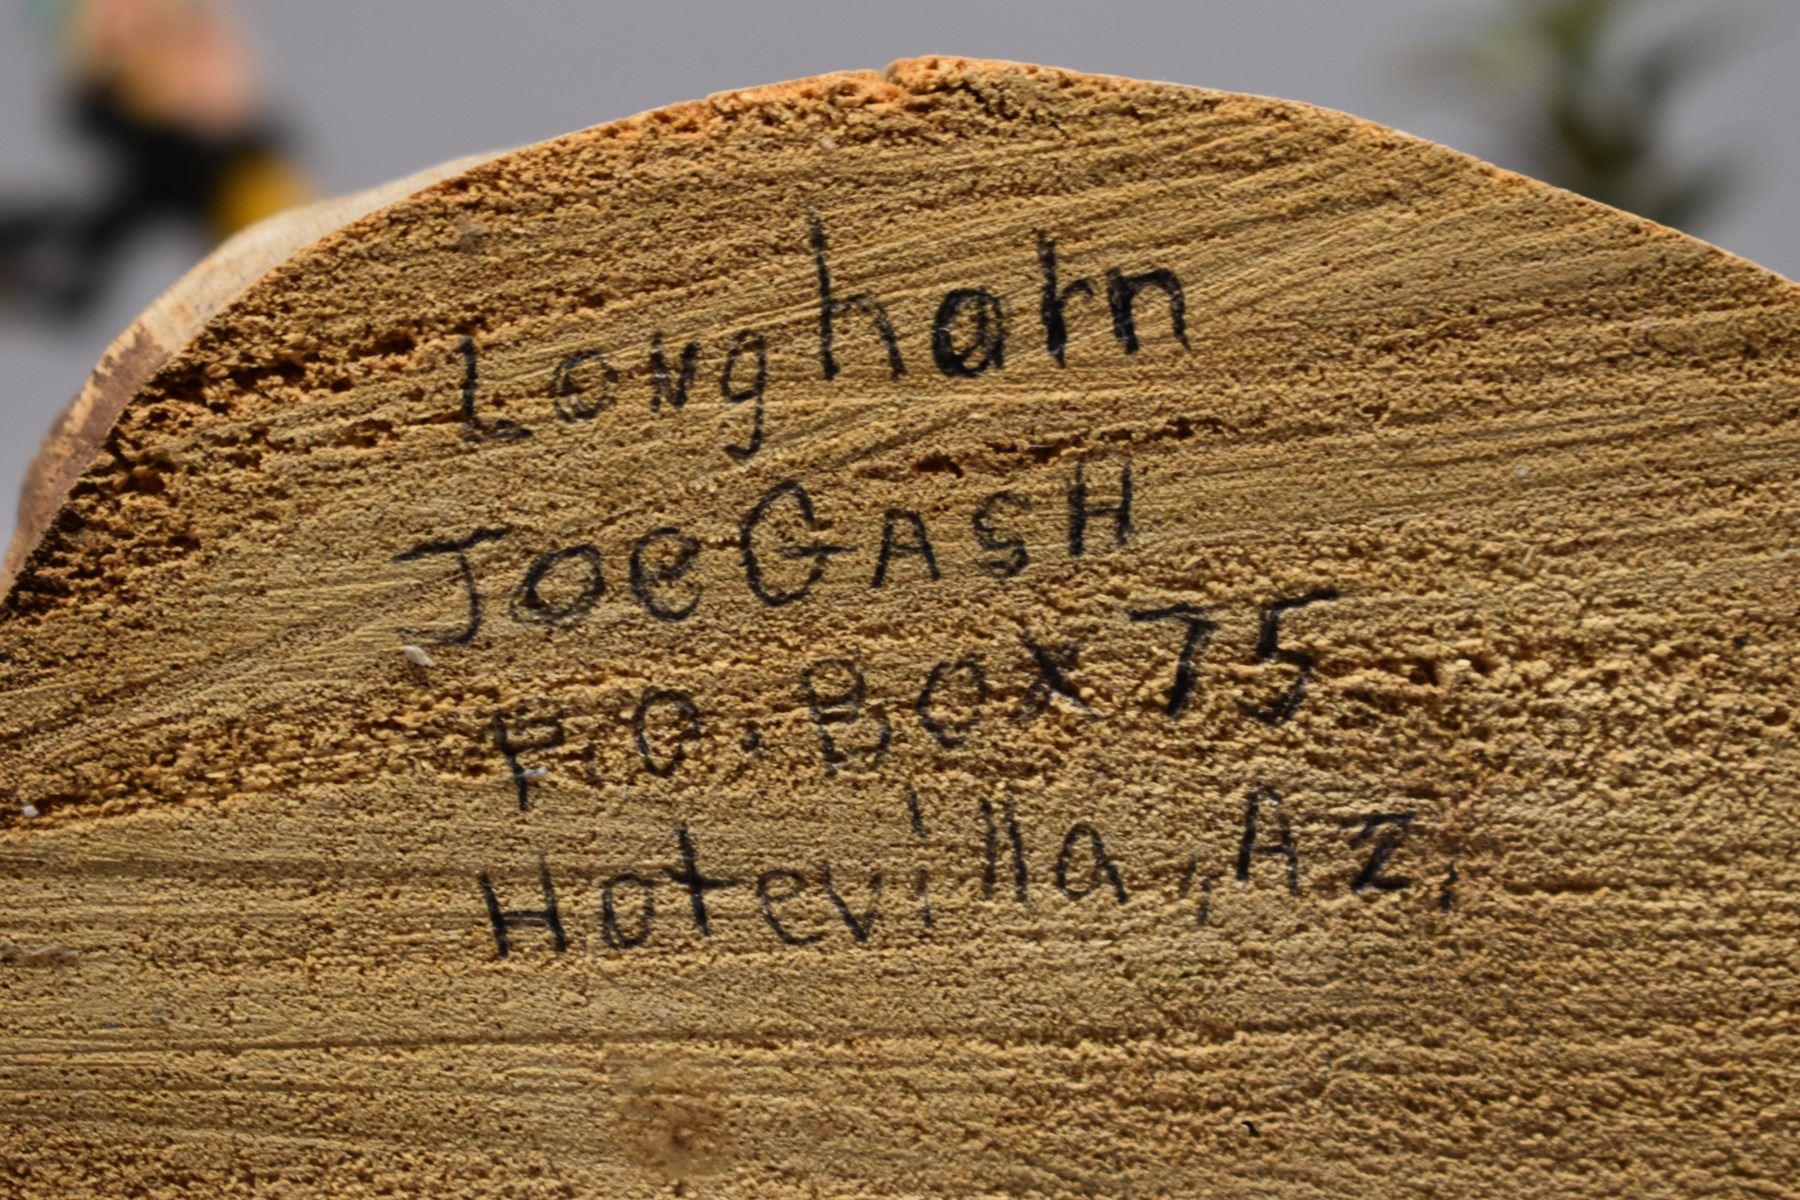 Longhorn
Joe GASH
P.O. Box 75
Hotevilla, Az.